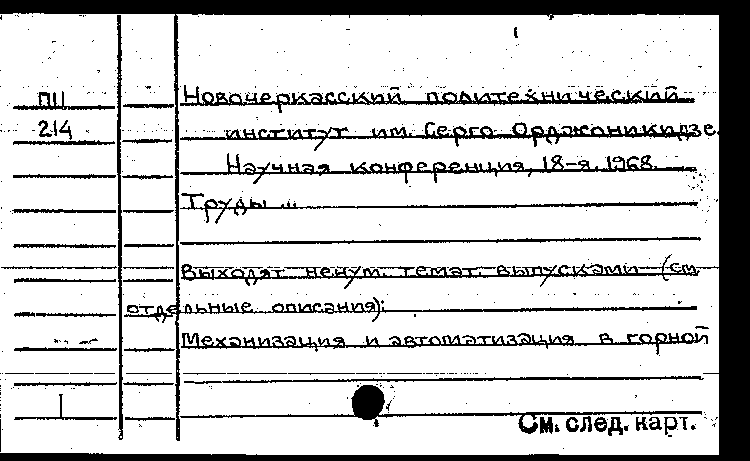 ПШ
214
Новочеркасский политехнический
институт им. Серго Орджоникидзе.
Научная конференция, 18-я. 1968.
Труды ...
Выходят ненум. темат. выпусками (см.
отдельные описания):
Механизация и автоматизация в горной
I
См. след. карт.